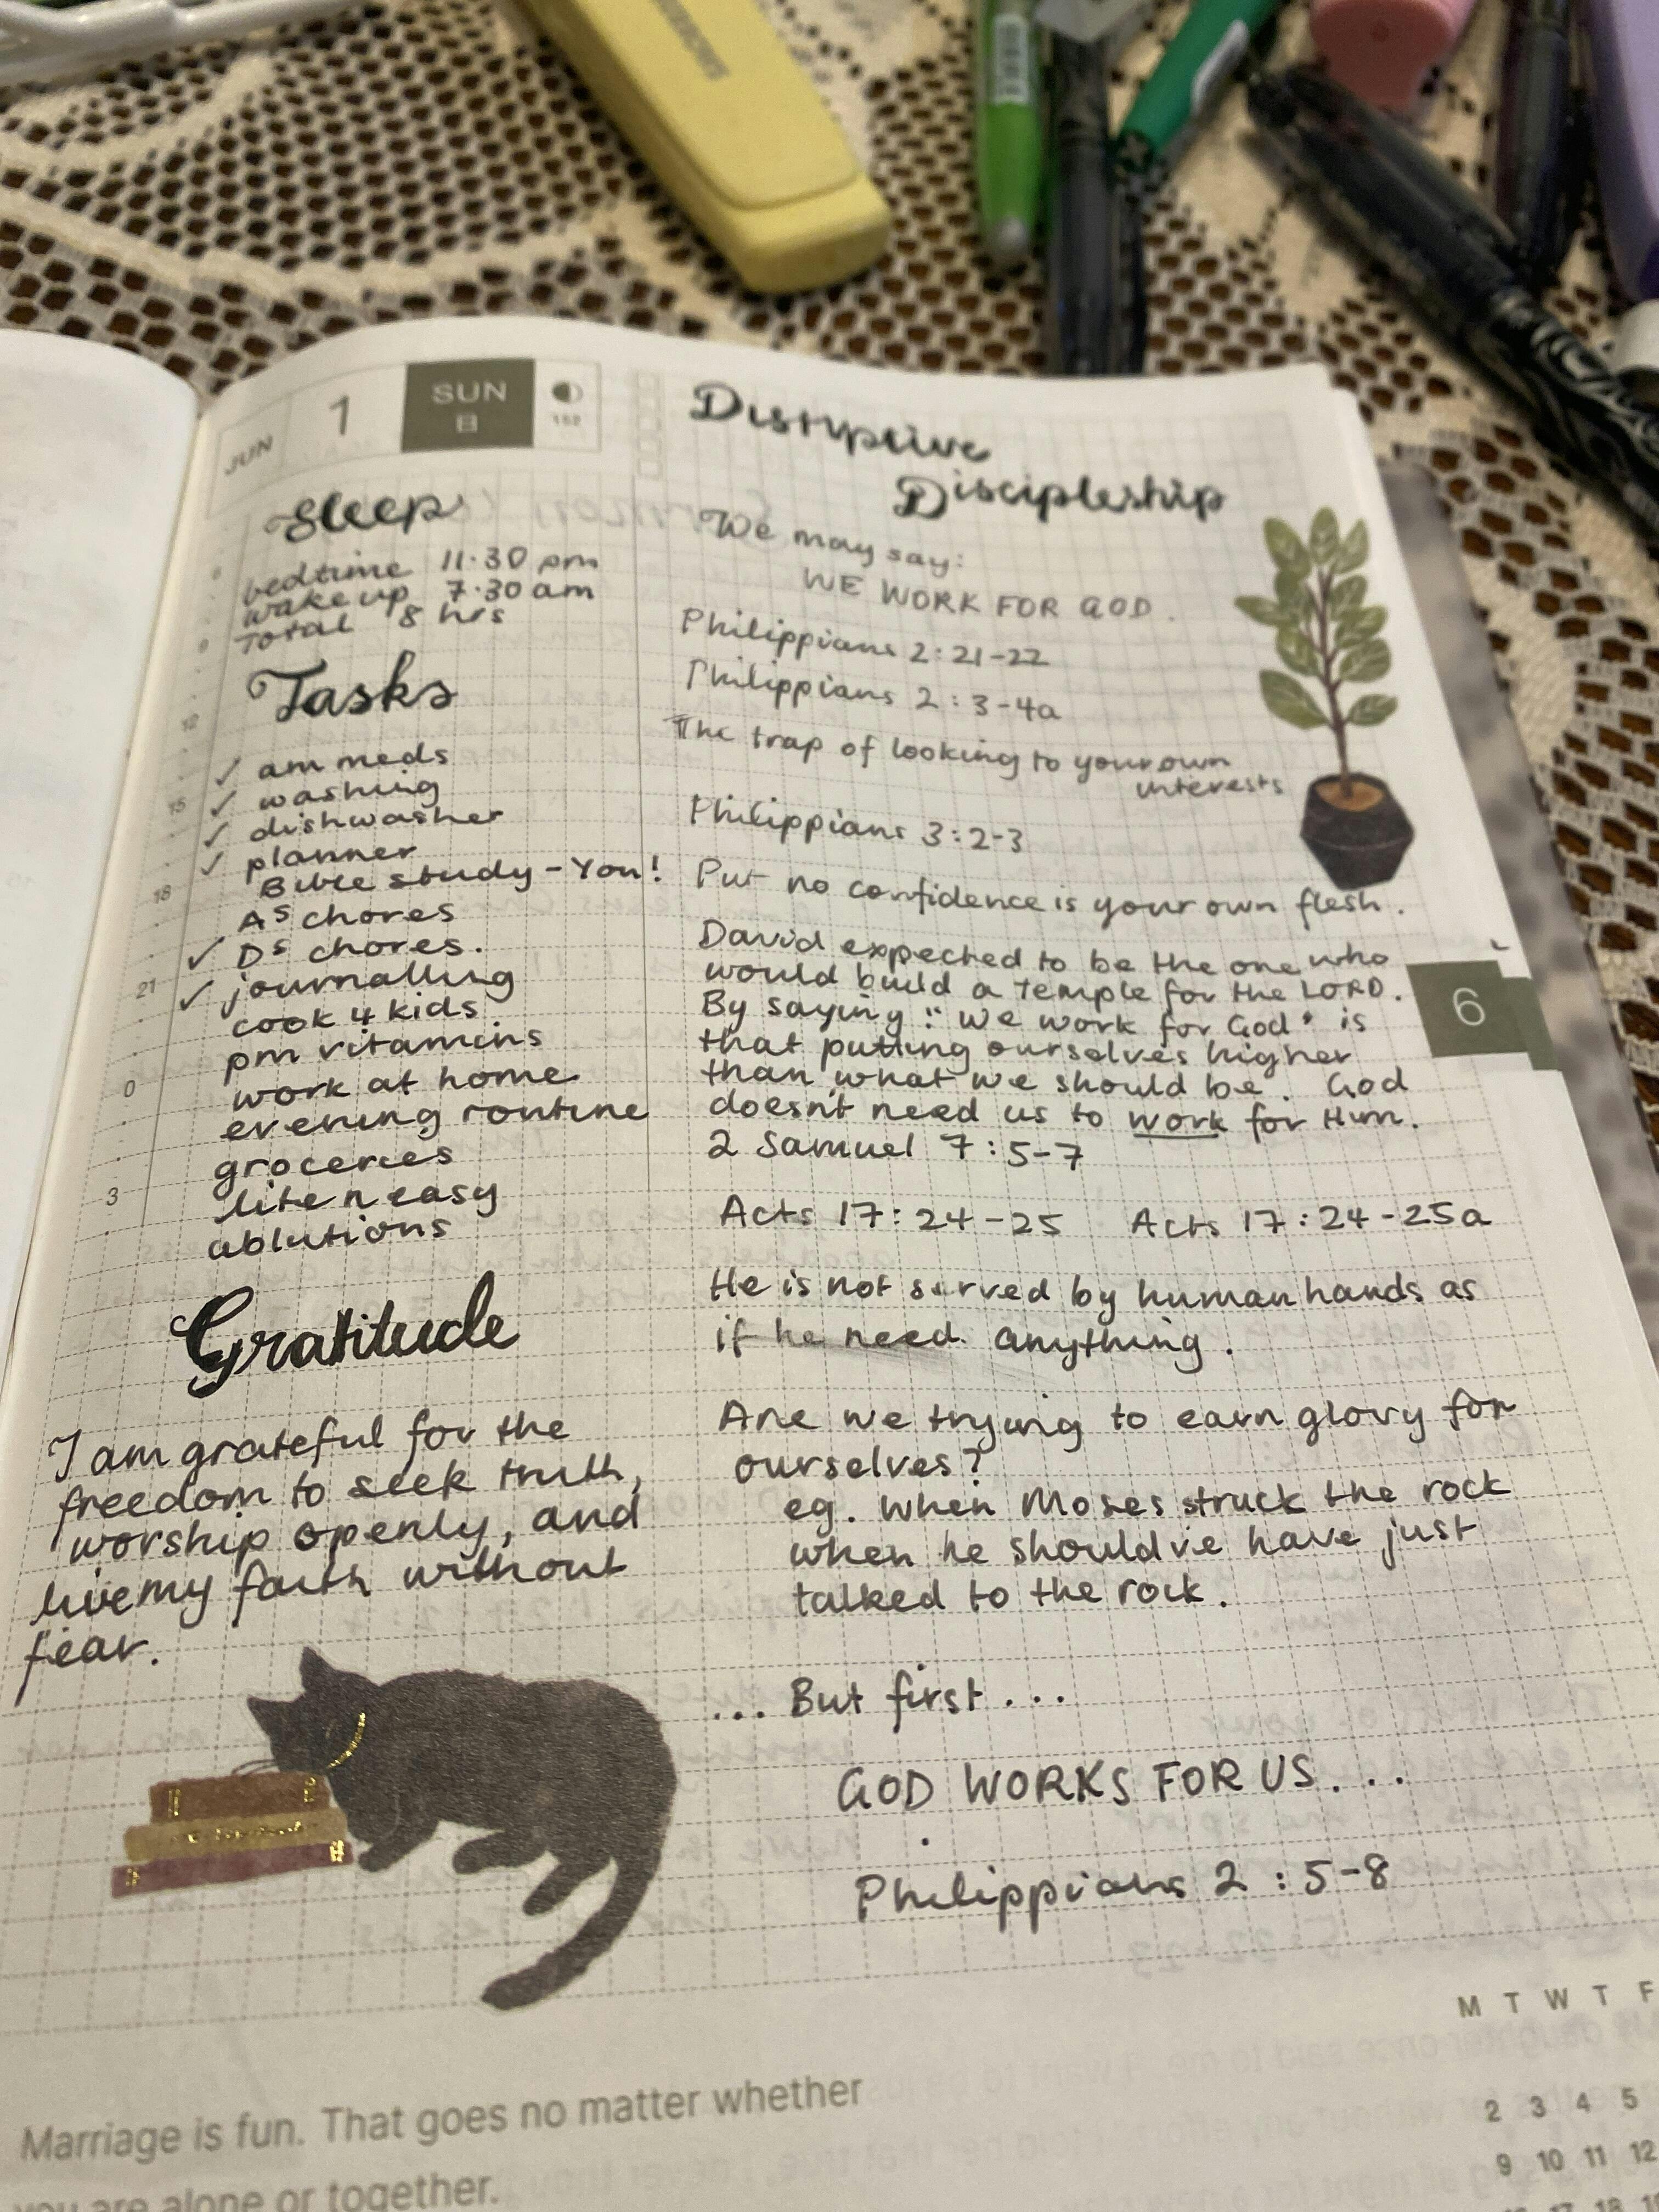 JUN 1 SUN 日 152
Sleep
bedtime 11:30 pm
wake up 7:30 am
Total 8 hrs
Tasks
✓ am meds
✓ washing
✓ dishwasher
✓ planner
Bible study - You!
As chores
✓ Ds chores.
✓ journalling
cook 4 kids
pm vitamins
work at home
evening routine
groceries
lite n easy
ablutions
9
12
15
18
21
0
3
Gratitude
I am grateful for the
freedom to seek truth,
worship openly, and
live my faith without
fear.
Discipleship
We may say:
WE WORK FOR GOD.
Philippians 2:21-22
Philippians 2:3-4a
The trap of looking to your own
interests
Philippians 3:2-3
Put no confidence is your own flesh.
David expected to be the one who
would build a temple for the LORD.
By saying: "We work for God" is
that putting ourselves higher
than what we should be. God
doesn't need us to work for Him.
2 Samuel 7:5-7
Acts 17:24-25 Acts 17:24-25a
He is not served by human hands as
if he need anything.
Are we trying to earn glory for
ourselves?
eg. when Moses struck the rock
when he should've have just
talked to the rock.
... But first ...
GOD WORKS FOR US...
Philippians 2:5-8
6
M T W T F
2 3 4 5
9 10 11 12
Marriage is fun. That goes no matter whether
you are alone or together.